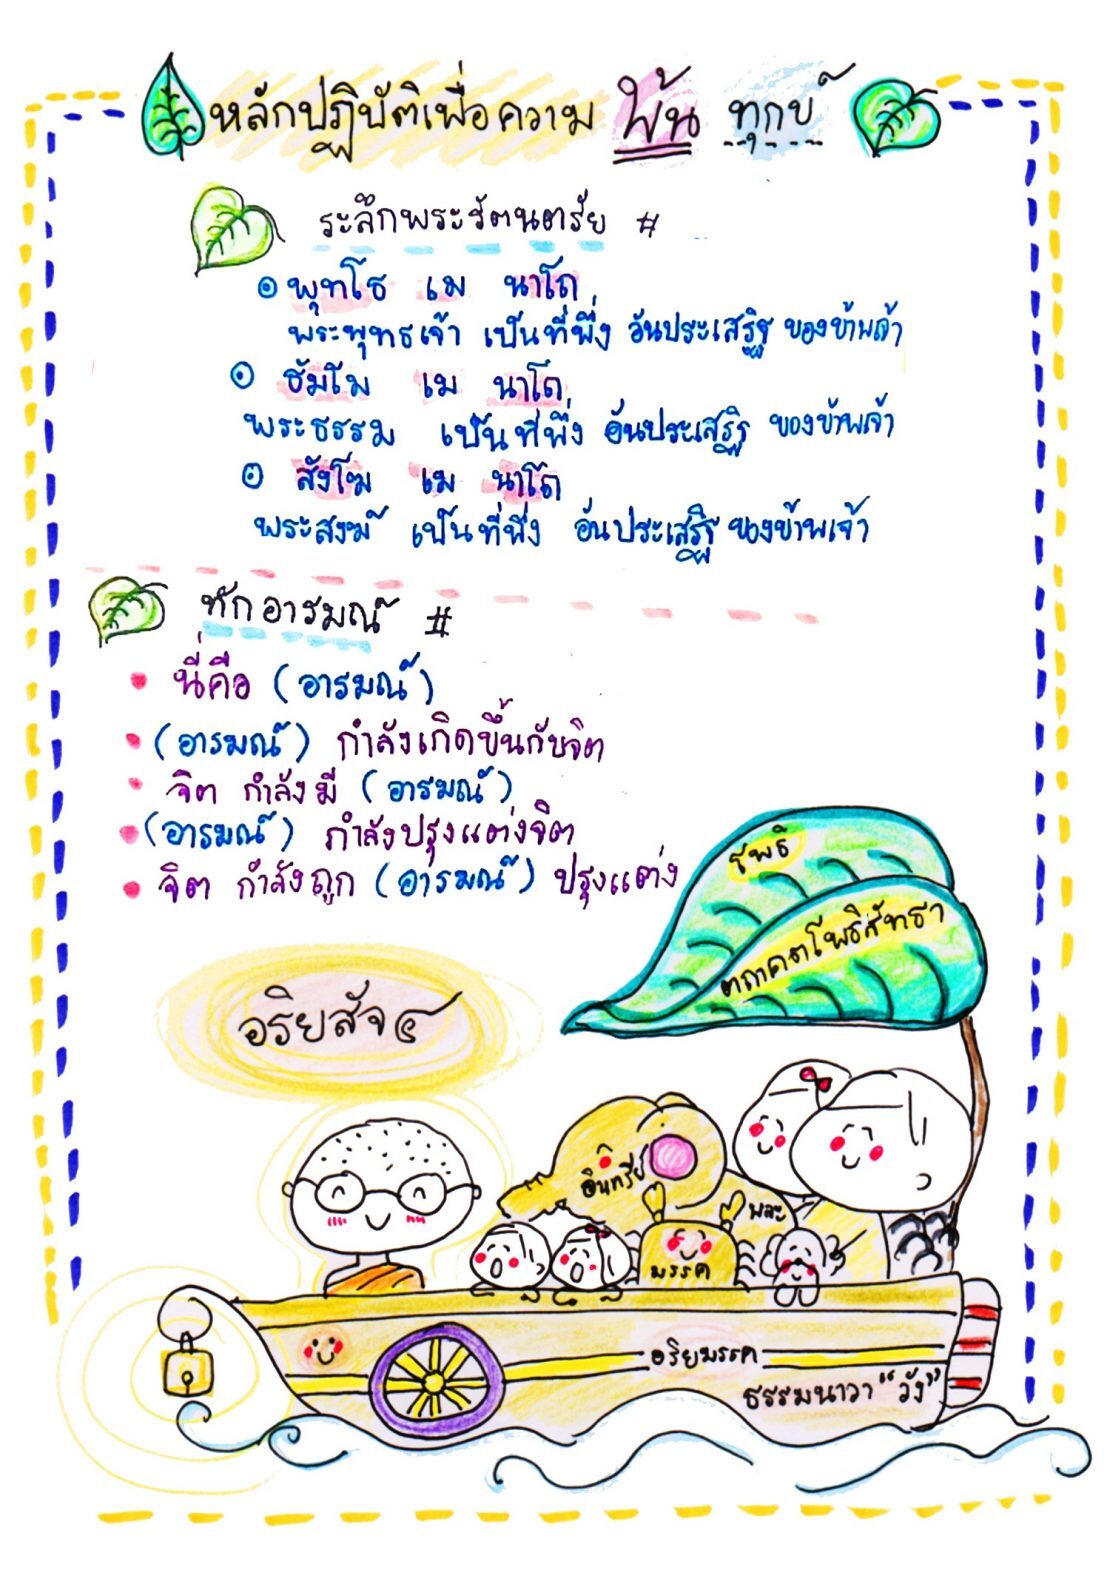 หลักปฏิบัติเพื่อความ พ้น ทุกข์
ระลึกพระรัตนตรัย #
๏ พุทโธ เม นาโถ
พระพุทธเจ้า เป็นที่พึ่ง อันประเสริฐ ของข้าพเจ้า
๏ ธัมโม เม นาโถ
พระธรรม เป็นที่พึ่ง อันประเสริฐ ของข้าพเจ้า
๏ สังโฆ เม นาโถ
พระสงฆ์ เป็นที่พึ่ง อันประเสริฐ ของข้าพเจ้า
ทักอารมณ์ #
• นี่คือ (อารมณ์)
• (อารมณ์) กำลังเกิดขึ้นกับจิต
• จิต กำลังมี (อารมณ์)
• (อารมณ์) กำลังปรุงแต่งจิต
• จิต กำลังถูก (อารมณ์) ปรุงแต่ง
โพธิ
ตถาคตโพธิสัทธา
อริยสัจ ๔
อินทรีย์
พละ
มรรค
อริยมรรค
ธรรมนาวา "วัง"